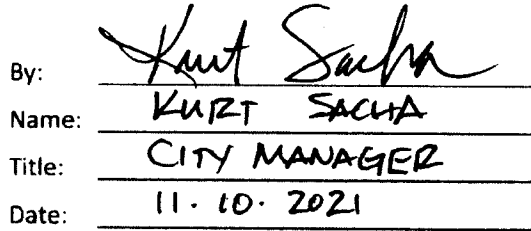 By: Kurt Sacha
Name: KURT SACHA
Title: CITY MANAGER
Date: 11.10.2021